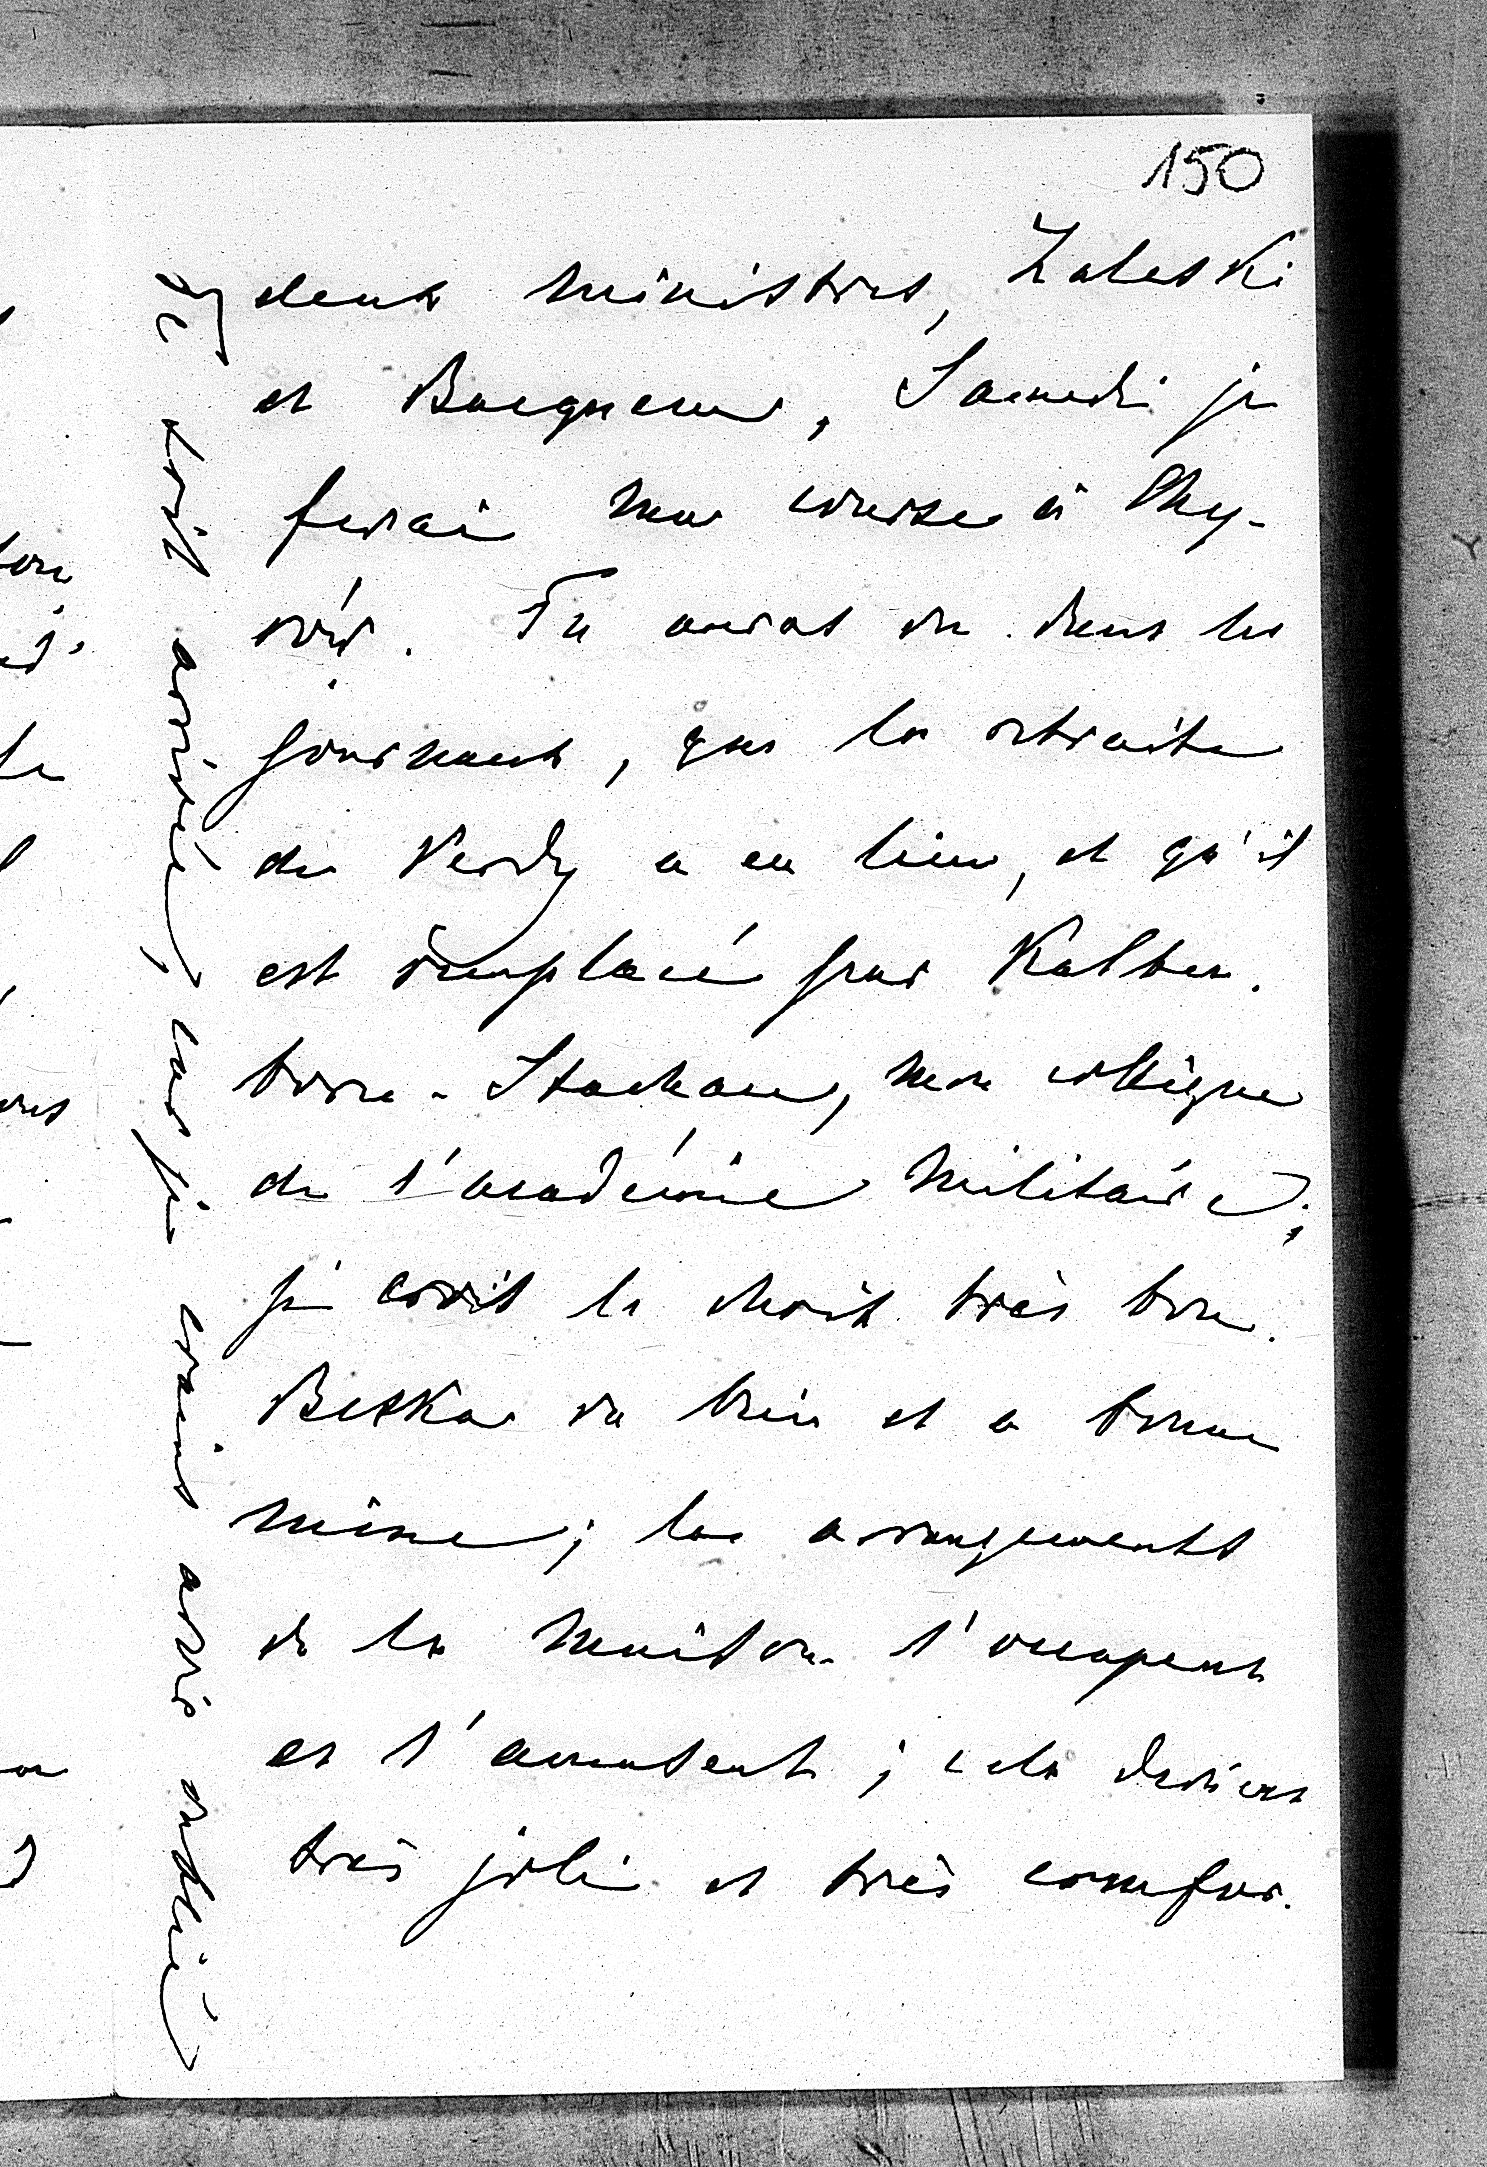 150
deux ministres, Zaleski
et Bacquem, Samedi je
ferai ma course à Chy-
rów. Tu auras vu dans les
journaux, que la retraite
de Verdy a eu lieu, et qu'il
est remplacé par Kalten.
born-Stachau, mon collègue
de l'académie militaire;
je crois le choix très bon.
Beska va bien et a bonne
mine; les arrangements
de la maison l'occupent
et l'amusent; cela devient
très joli et très comfor.
écrit arrivée, car je crains avoir oublié